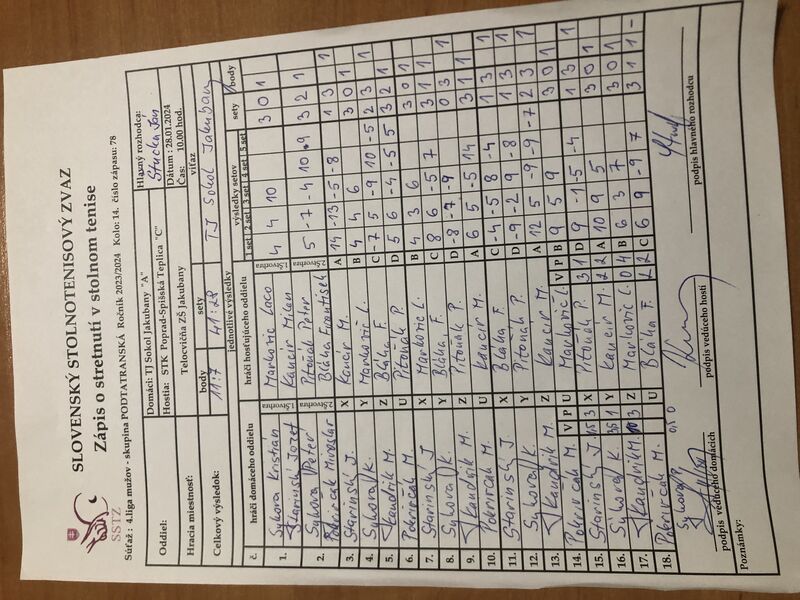 SLOVENSKÝ STOLNOTENISOVÝ ZVAZ
Zápis o stretnutí v stolnom tenise
SSTZ
Súťaž : 4.liga mužov - skupina PODTATRANSKÁ Ročník 2023/2024 Kolo: 14. číslo zápasu: 78
Oddiel:
Domáci: TJ Sokol Jakubany "A"
Hostia: STK Poprad-Spišská Teplica "C"
Hlavný rozhodca:
Hracia miestnosť:
Telocvičňa ZŠ Jakubany
Dátum : 28.01.2024
Čas: 10.00 hod.
Celkový výsledok:
body
sety
víťaz
11:7
41:28
TJ Sokol Jakubany
jednotlivé výsledky
č.
hráči domáceho oddielu
hráči hosťujúceho oddielu
výsledky setov
1.set 2.set 3.set 4.set 5.set
sety
body
1. Sykora Kristian 1.štvorhra Markovic Laco 4 4 10 3 0 1
Starinský Jozef Kancir Milan
2. Sykora Peter 2.štvorhra Pitoňák Peter 5 -7 -4 10 9 3 2 1
Pokrivčak Miroslav Bláha František
3. Starinský J. X Kancir M. A 14 -13 -5 -8 1 3 1
4. Sykora K. Y Markovič L. B 4 4 6 3 0 1
5. Kandrik M. Z Bláha F. C -7 5 -9 10 -5 2 3 1
6. Pokrivčak M. U Pitoňák P. D 5 6 -4 -5 5 3 2 1
7. Starinský J. X Markovič L. B 4 3 6 3 0 1
8. Sykora K. Y Bláha F. C 8 6 -5 7 3 1 1
9. Kandrik M. Z Pitoňák P. D -8 -7 -9 0 3 1
10. Pokrivčak M. U Kancir M. A 6 5 -5 14 3 1 1
11. Starinský J. X Bláha F. C -4 -5 8 -4 1 3 1
12. Sykora K. Y Pitoňák P. D -9 -2 9 -8 1 3 1
13. Kandrik M. Z Kancir M. A 12 5 -9 -9 -7 2 3 1
14. Pokrivčak M. V P U Markovič L. V P B 9 5 9 3 0 1
15. Starinský J. X Pitoňák P. 3 1 D 9 -1 -5 -4 1 3 1
16. Sykora K. 3 1 Y Kancir M. 2 2 A 10 9 5 3 0 1
17. Kandrik M. Z Markovič L. 0 4 B 6 3 7 3 0 1
18. Pokrivčak M. U Bláha F. 2 2 C 6 9 -9 7 3 1 1 -
Sykora P.
podpis vedúceho domácich
podpis vedúceho hostí
podpis hlavného rozhodcu
Poznámky: